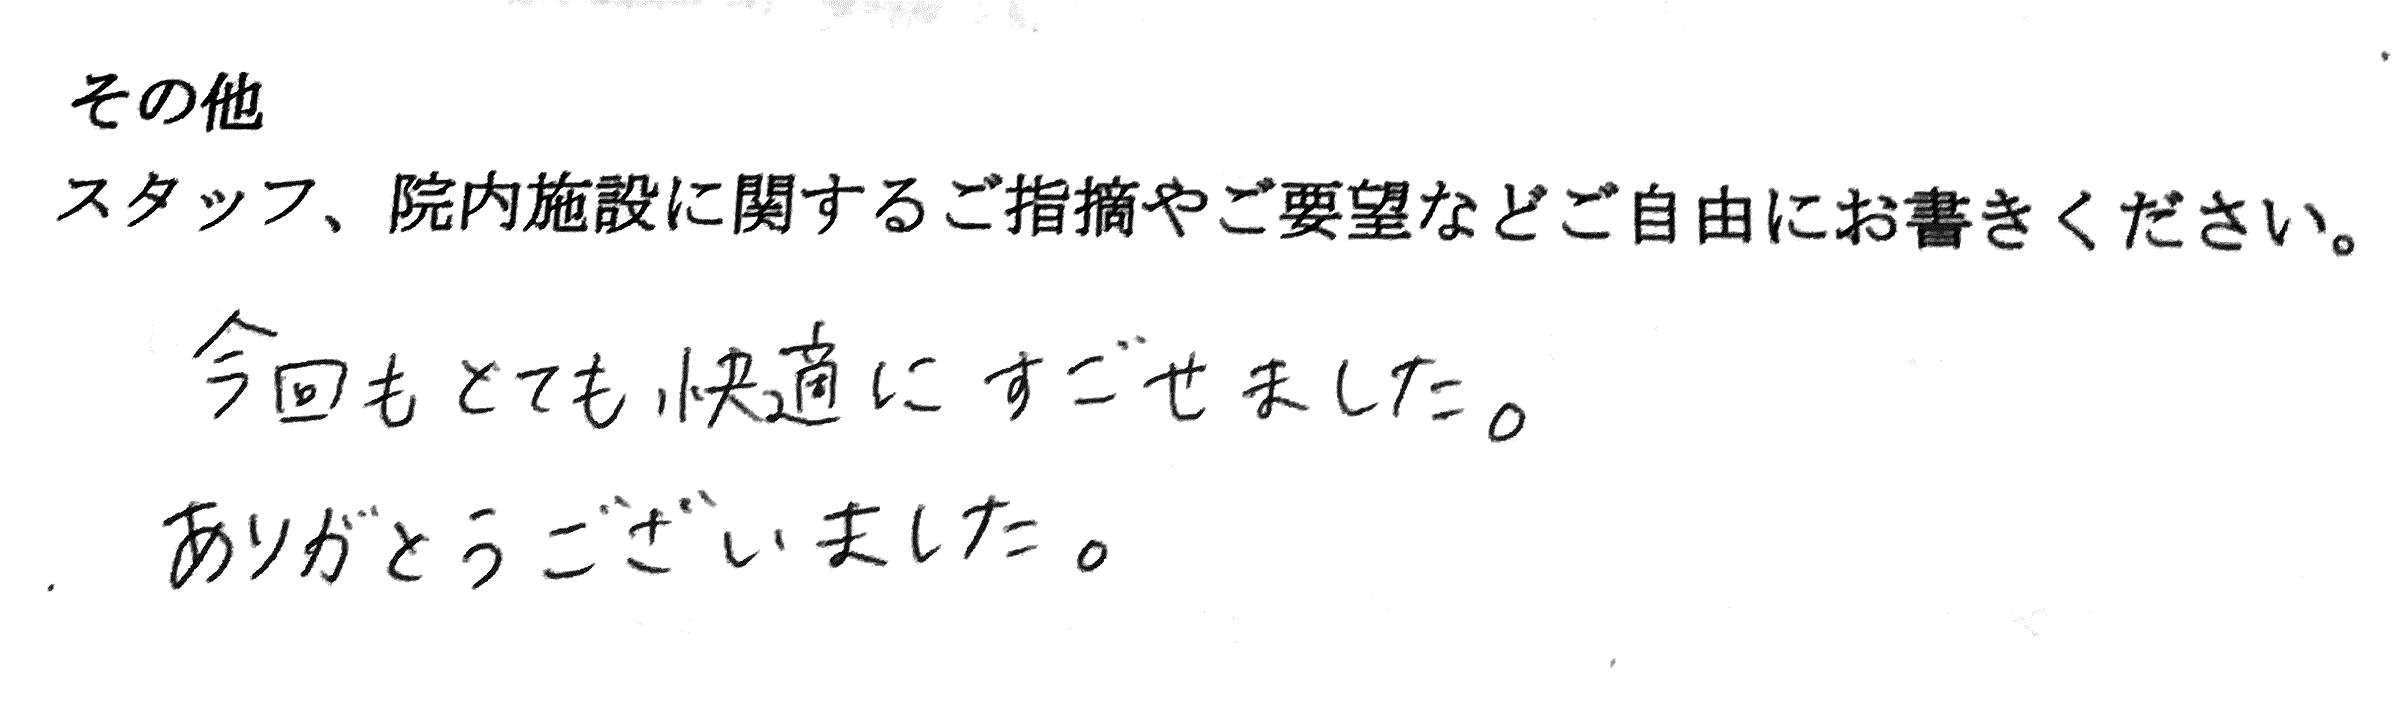 その他
スタッフ、院内施設に関するご指摘やご要望などご自由にお書きください。
今回もとても快適にすごせました。
ありがとうございました。